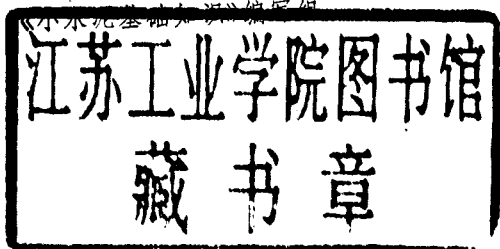 《小水泥基础知识》编写组
江苏工业学院图书馆
藏书章